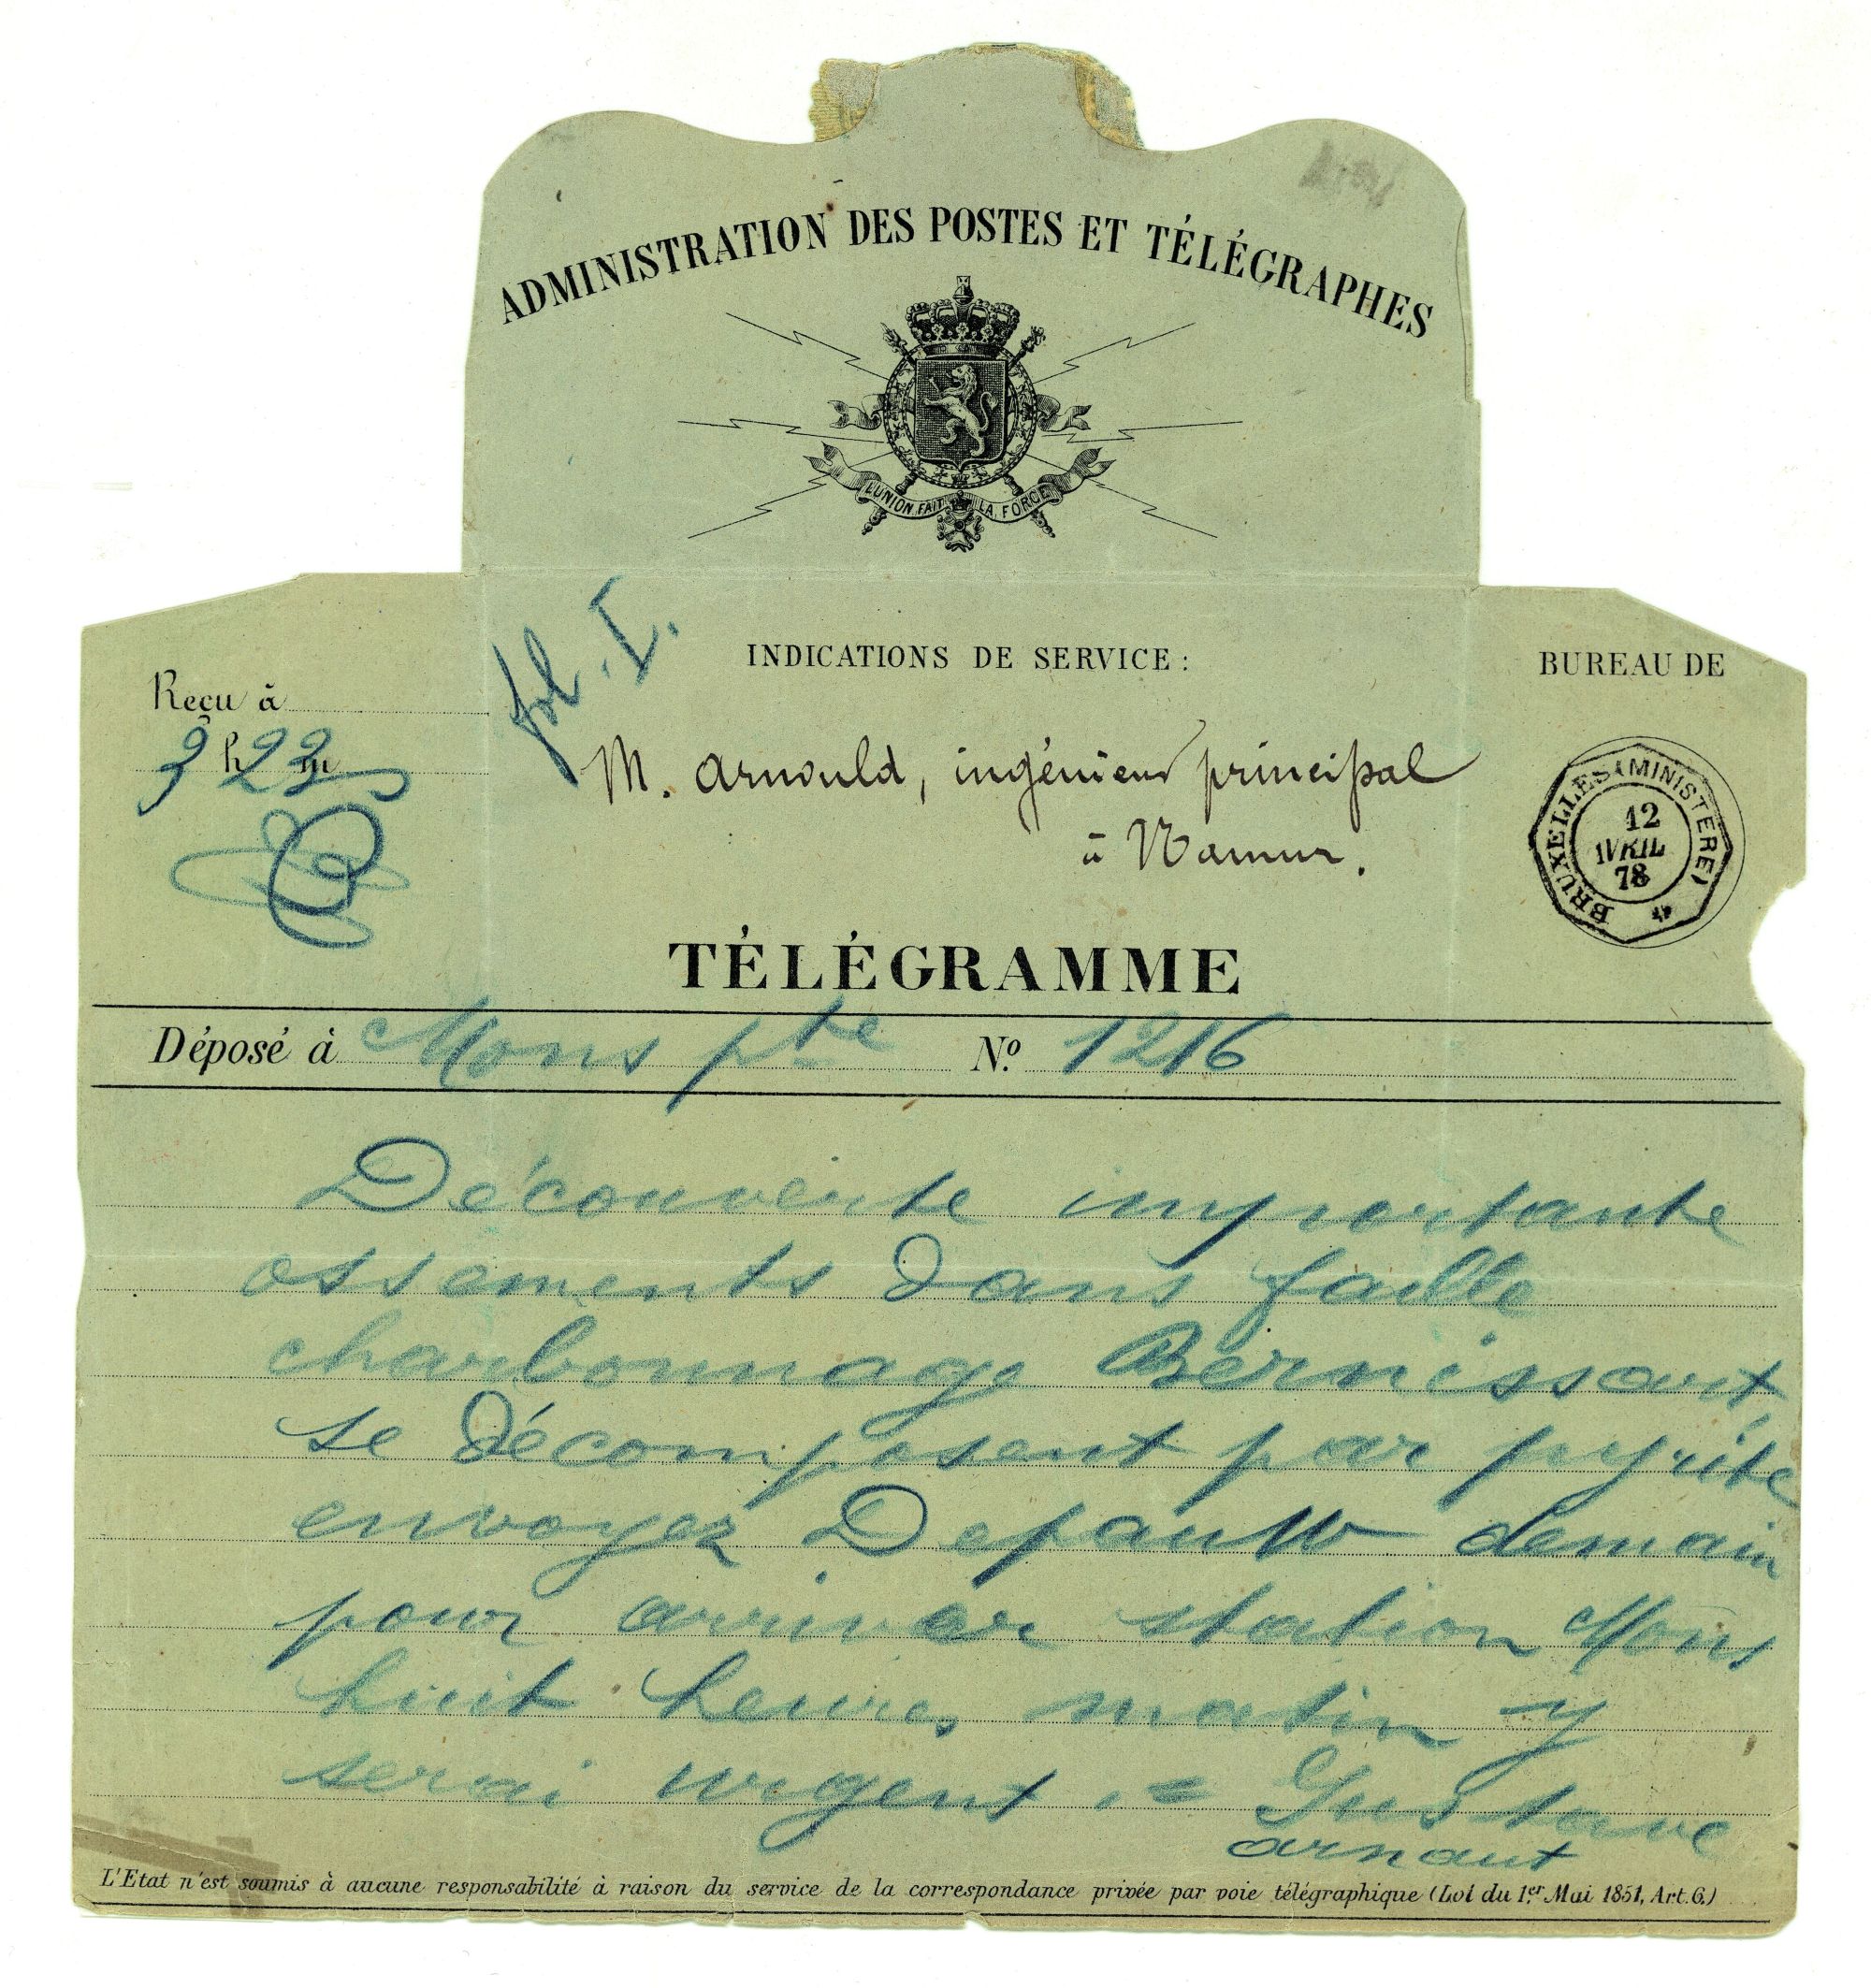 ADMINISTRATION DES POSTES ET TÉLÉGRAPHES
L'UNION FAIT LA FORCE
fol. I.
INDICATIONS DE SERVICE :
BUREAU DE
Reçu à
3 h 23 m
M. Arnould, ingénieur principal
à Namur.
BRUXELLES (MINISTÈRE)
12
AVRIL
78
TÉLÉGRAMME
Déposé à Mons pte No. 1216
Découverte importante
ossements dans faille
charbonnage Bernissart
se décomposent par pyrite
envoyez Depauw demain
pour arriver station Mons
huit heures matin y
serai urgent . = Gustave
arnaut
L'Etat n'est soumis à aucune responsabilité à raison du service de la correspondance privée par voie télégraphique (Loi du 1er Mai 1851, Art. 6.)